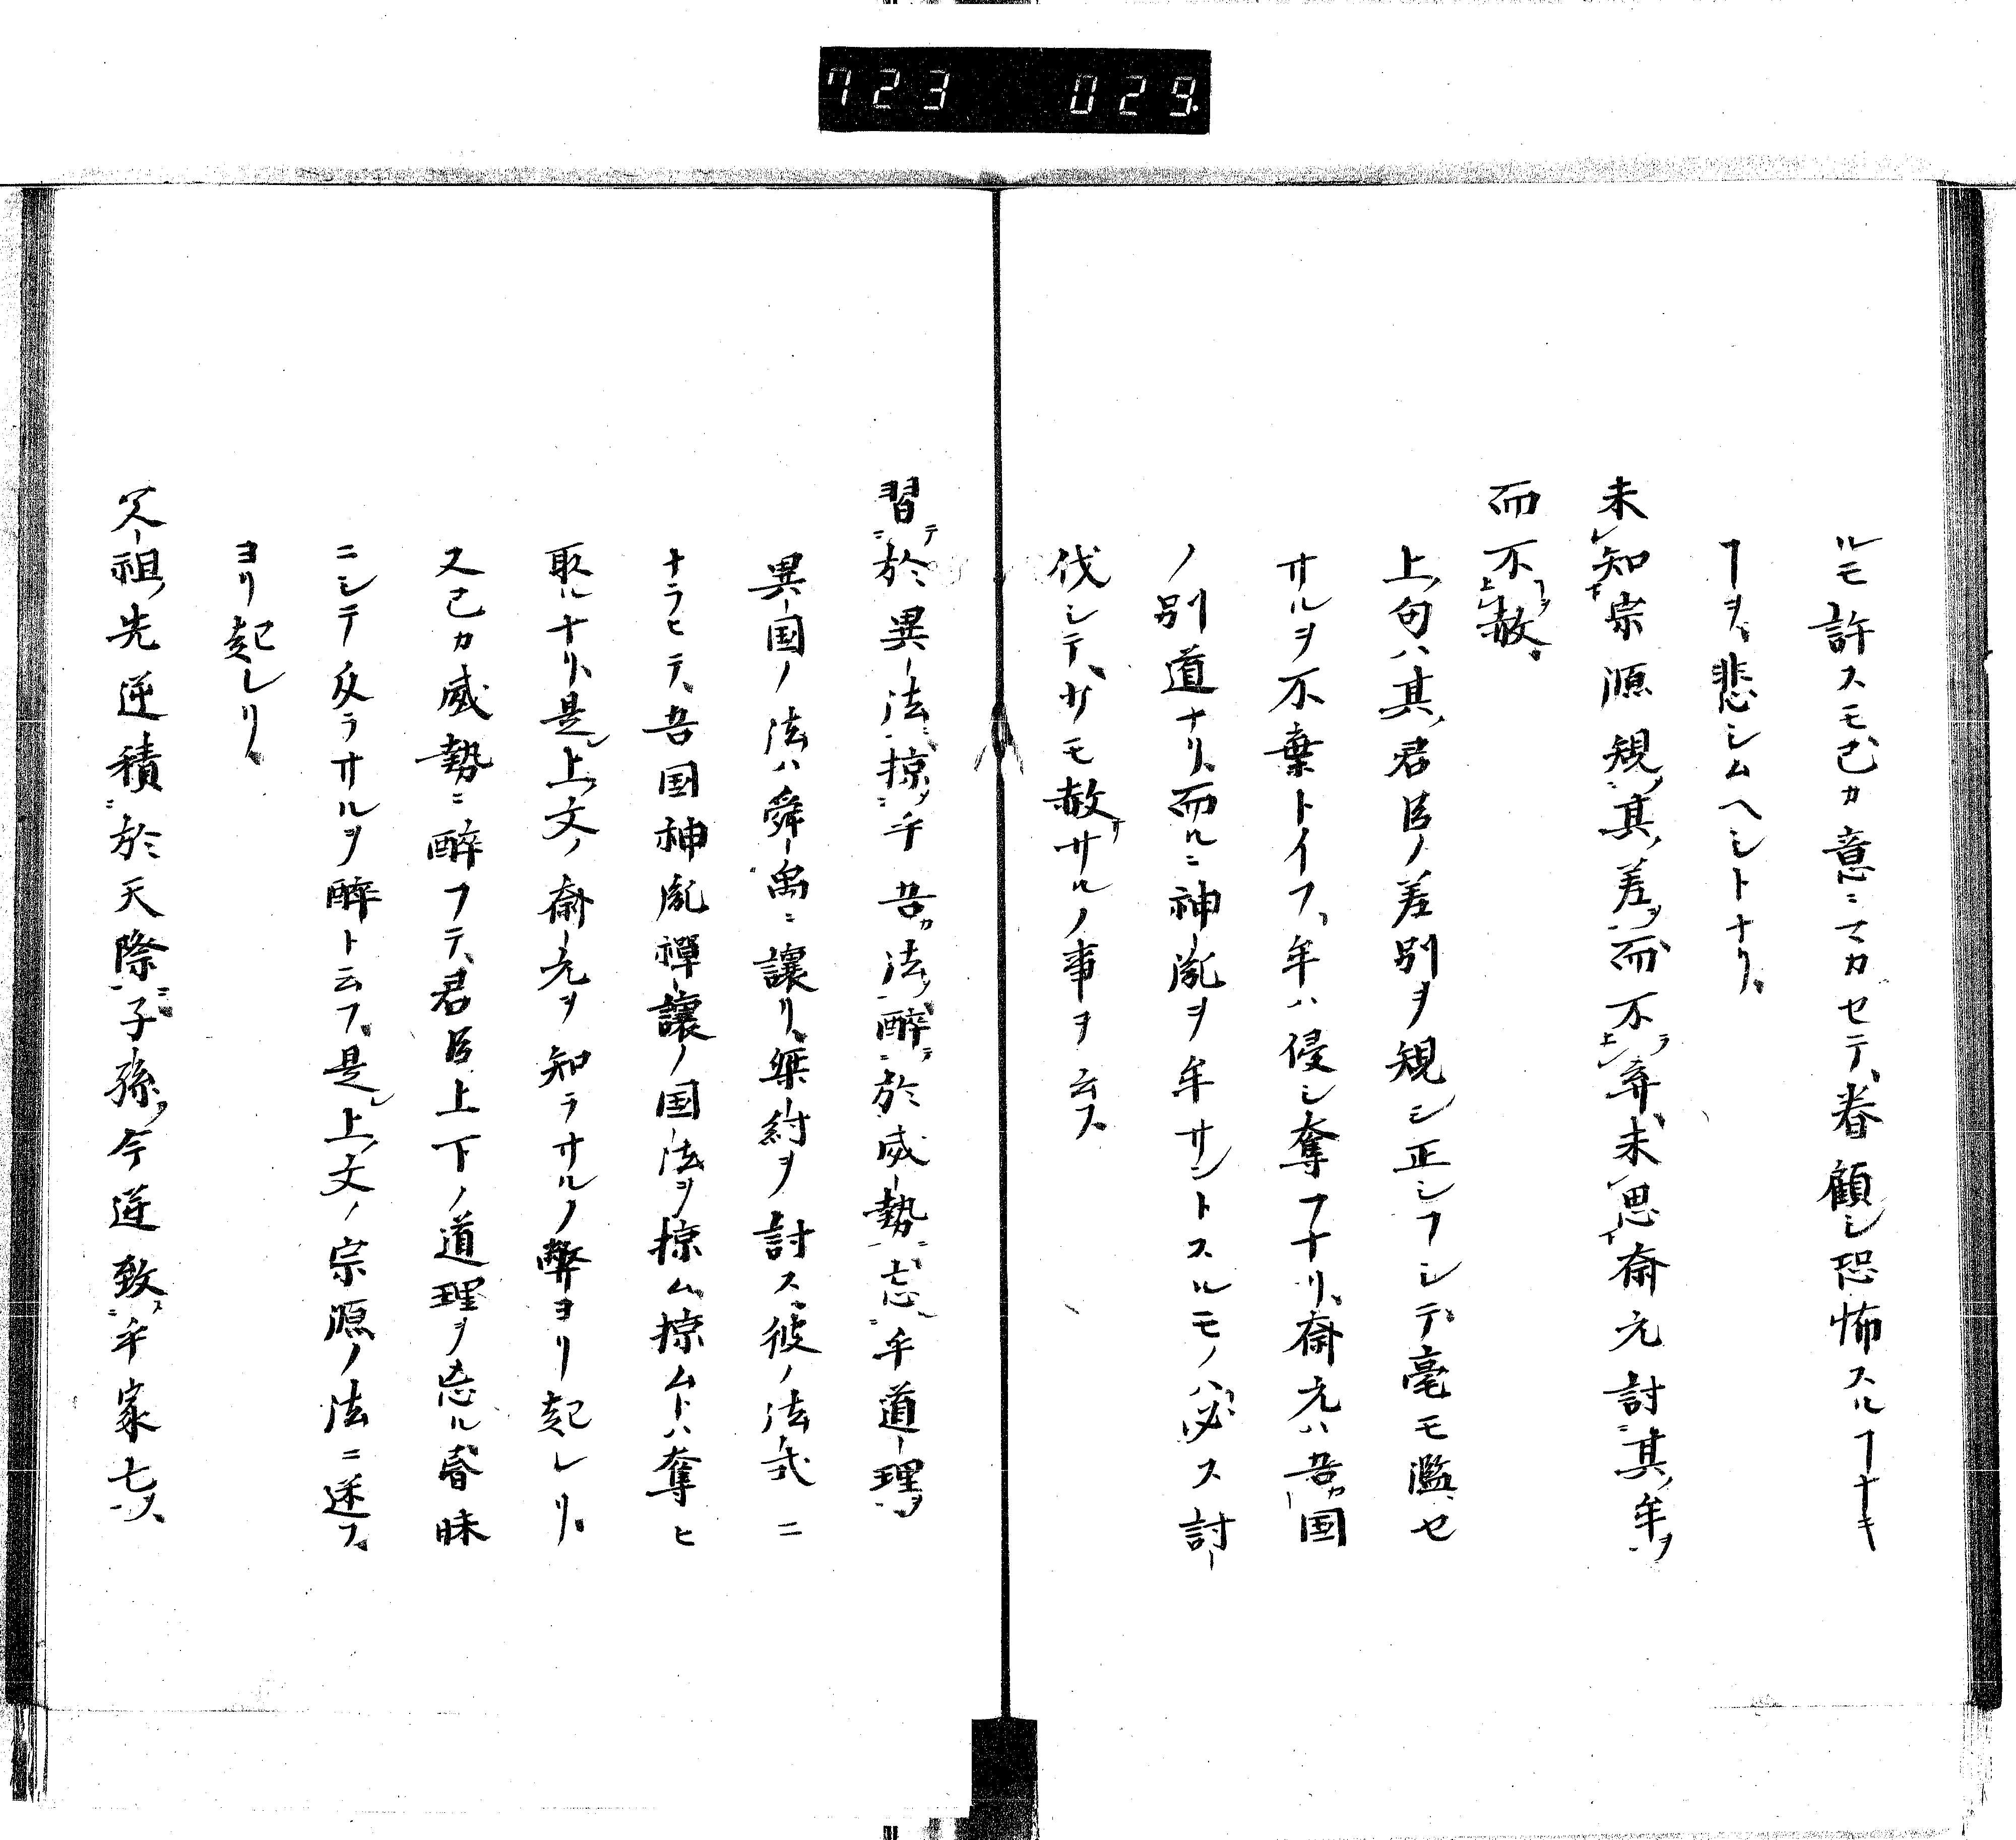 723 029.
ルモ許スモ己カ意ニマカセテ、眷顧シ恐怖スルヿナキ
ヿヲ、悲シムヘシトナリ、
未レ知宗源規其差ヲ而不弃、未思斎元討其牟ヲ
而不赦
上句ハ其君臣ノ差別ヲ規シ正シフシテ、毫モ濫セ
サルヲ不棄トイフ、牟ハ侵シ奪フナリ、斎元ハ吾カ国
ノ別道ナリ、而ルニ神胤ヲ牟サントスルモノハ必ス討
伐シテ、サモ赦サルノ事ヲ云フ、
習テ於異法掠乎吾カ法酔テ於威勢忘乎道理ヲ
異国ノ法ハ舜禹ニ讓リ、桀紂ヲ討ス彼ノ法式ニ
ナラヒテ、吾国神胤禪讓ノ国法ヲ掠ム、掠ムトハ奪ヒ
取ルナリ、是上文ノ斎元ヲ知ラサルノ弊ヨリ起レリ、
又己カ威勢ニ酔フテ、君臣上下ノ道理ヲ忘ル昏昧
ニシテ反ラサルヲ酔ト云フ、是上文ノ宗源ノ法ニ迷フ
ヨリ起レリ、
祖先逆積於天際子孫今逆致乎家亡